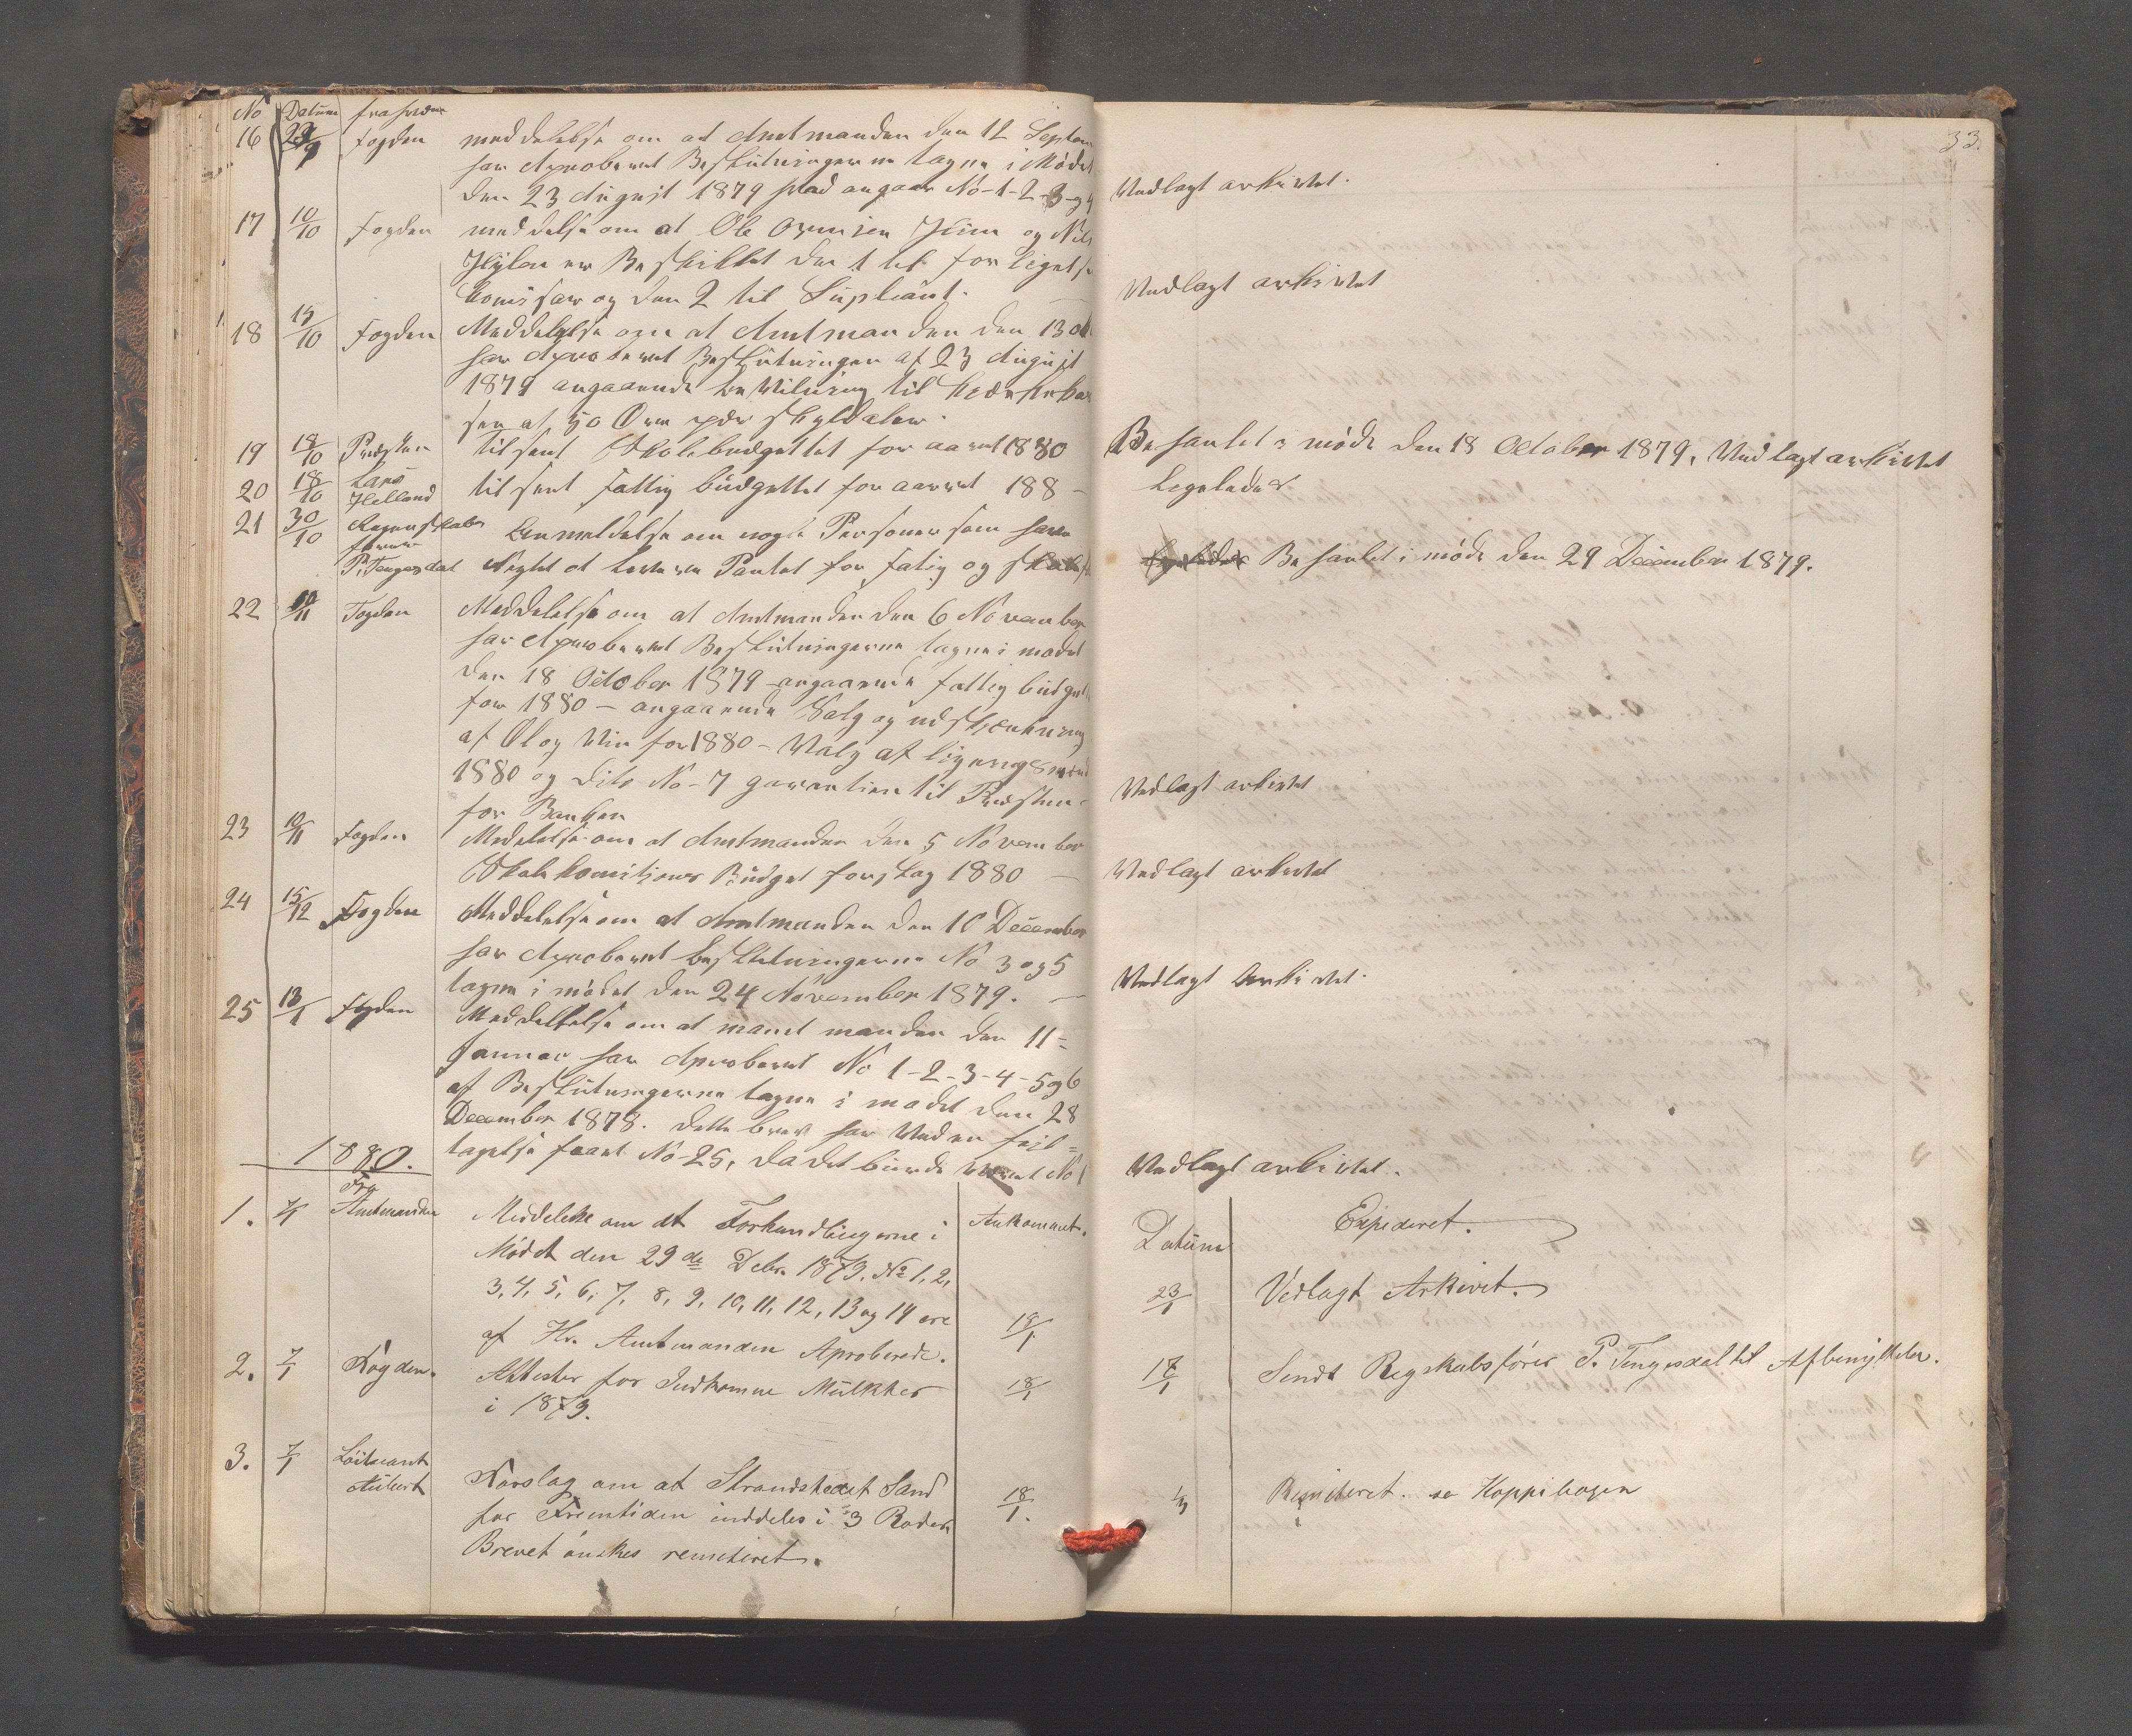 No Datum fra hvem
16 23/9 Fogden meddelelse om at Amtmanden den 12 Septem
har Aproberet Beslutningerne tagne i Mödet
den 23 August 1879 hvad angaar No-1-2-3-og 4
Vedlagt arkivet.
17 10/10 Fogden meddelse om at Ole og Nils
er Beskikket den 1 til for ligels
Comisær og den 2 til Supleant.
Vedlagt arkivet
18 15/10 Fogden Meddelelse om at Amtmanden den 13 okt
har Aproberet Beslutningen af 23 August
1879 angaaende beVilning til
sen at 50 Øre per skyldaler.
19 18/10 Præsten tilsent Skolebudgettet for aaret 1880
Behanlet i möde den 18 October 1879, Vedlagt arkivet
20 18/10 Lars Helland tilsent fattig büdgettet for aarret 188-
Legeledes
21 30/10 Regenskabs
fören
P. Tengesdal
Anmeldelse om nogle Personer som har
Negtet at Pantet for fatig og skolesk
Legeledes Behanlet i möde den 29 December 1879.
22 10/11 Fogden Meddelelse om at Amtmanden den 6 November
har Aproberet Beslutningerne tagne i mödet
den 18 October 1879 angaaende fattig büdget
for 1880 - angaaende Salg og udskjenkning
af Øl og Vin for 1880 - Valg af ligningsmend
1880 og dito No-7 garantien til Præsten
for Banken
Vedlagt arkivet
23 10/11 Fogden Medelelse om at Amtmanden den 5 November
Skolekomisjones Büdget forslag 1880 -
Vedlagt arkivet
24 15/12 Fogden Meddelelse om at Amtmanden den 10 December
har Aproberet beslutningerne No 3 og 5
tagne i mödet den 24 November 1879. -
Vedlagt Arkivet.
25 13/1 Fogden Meddelelse om at mant manden den 11=
Januar har Aproberet No 1-2-3-4-5 og 6
af Beslutningerne tagne i mödet den 28
December 1878. dette brev har Ved en fejl=
tagelse faaet No-25, da det burde været No 1
Vedlagt arkivet.
1880.
Fra Ankommet. Datüm Expederet.
1. 7/1 Amtmanden Meddelelse om at Forhandlingerne i
Mödet den 29de Debr. 1879. No 1, 2,
3, 4, 5, 6, 7, 8, 9, 10, 11, 12, 13 og 14 ere
af Hr. Amtmanden Aproberede. 18/1
23/1 Vedlagt Arkivet.
2. 7/1 Fogden. Attester for Indkomne Mülkter
i 1879. 18/1
18/1 Sendt Regskabsförer P. Tengesdal til Afbenyttelse.
3. 7/1 Löitnant
Aubert
Forslag om at Strandstedet Sand
for Fremtiden inddeles i 3 Roder. 18/1.
Brevet önskes remiteret.
1/3 Remiteret. se Koppibogen
33.